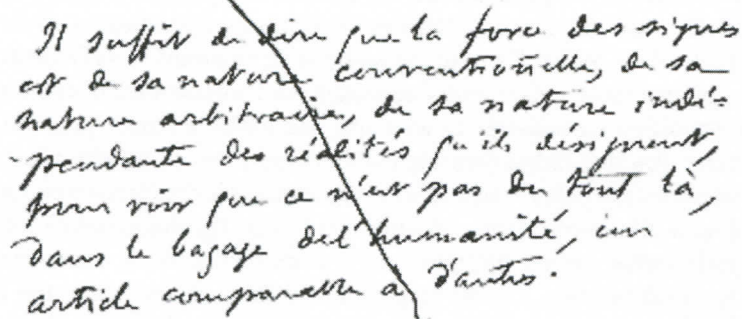 Il suffit de dire que la force des signes
est de sa nature conventionelle, de sa
nature arbitraire, de sa nature indé-
pendante des réalités qu'ils désignent,
pour voir que ce n'est pas du tout là,
dans le bagage de l'humanité, un
article comparable à d'autres.